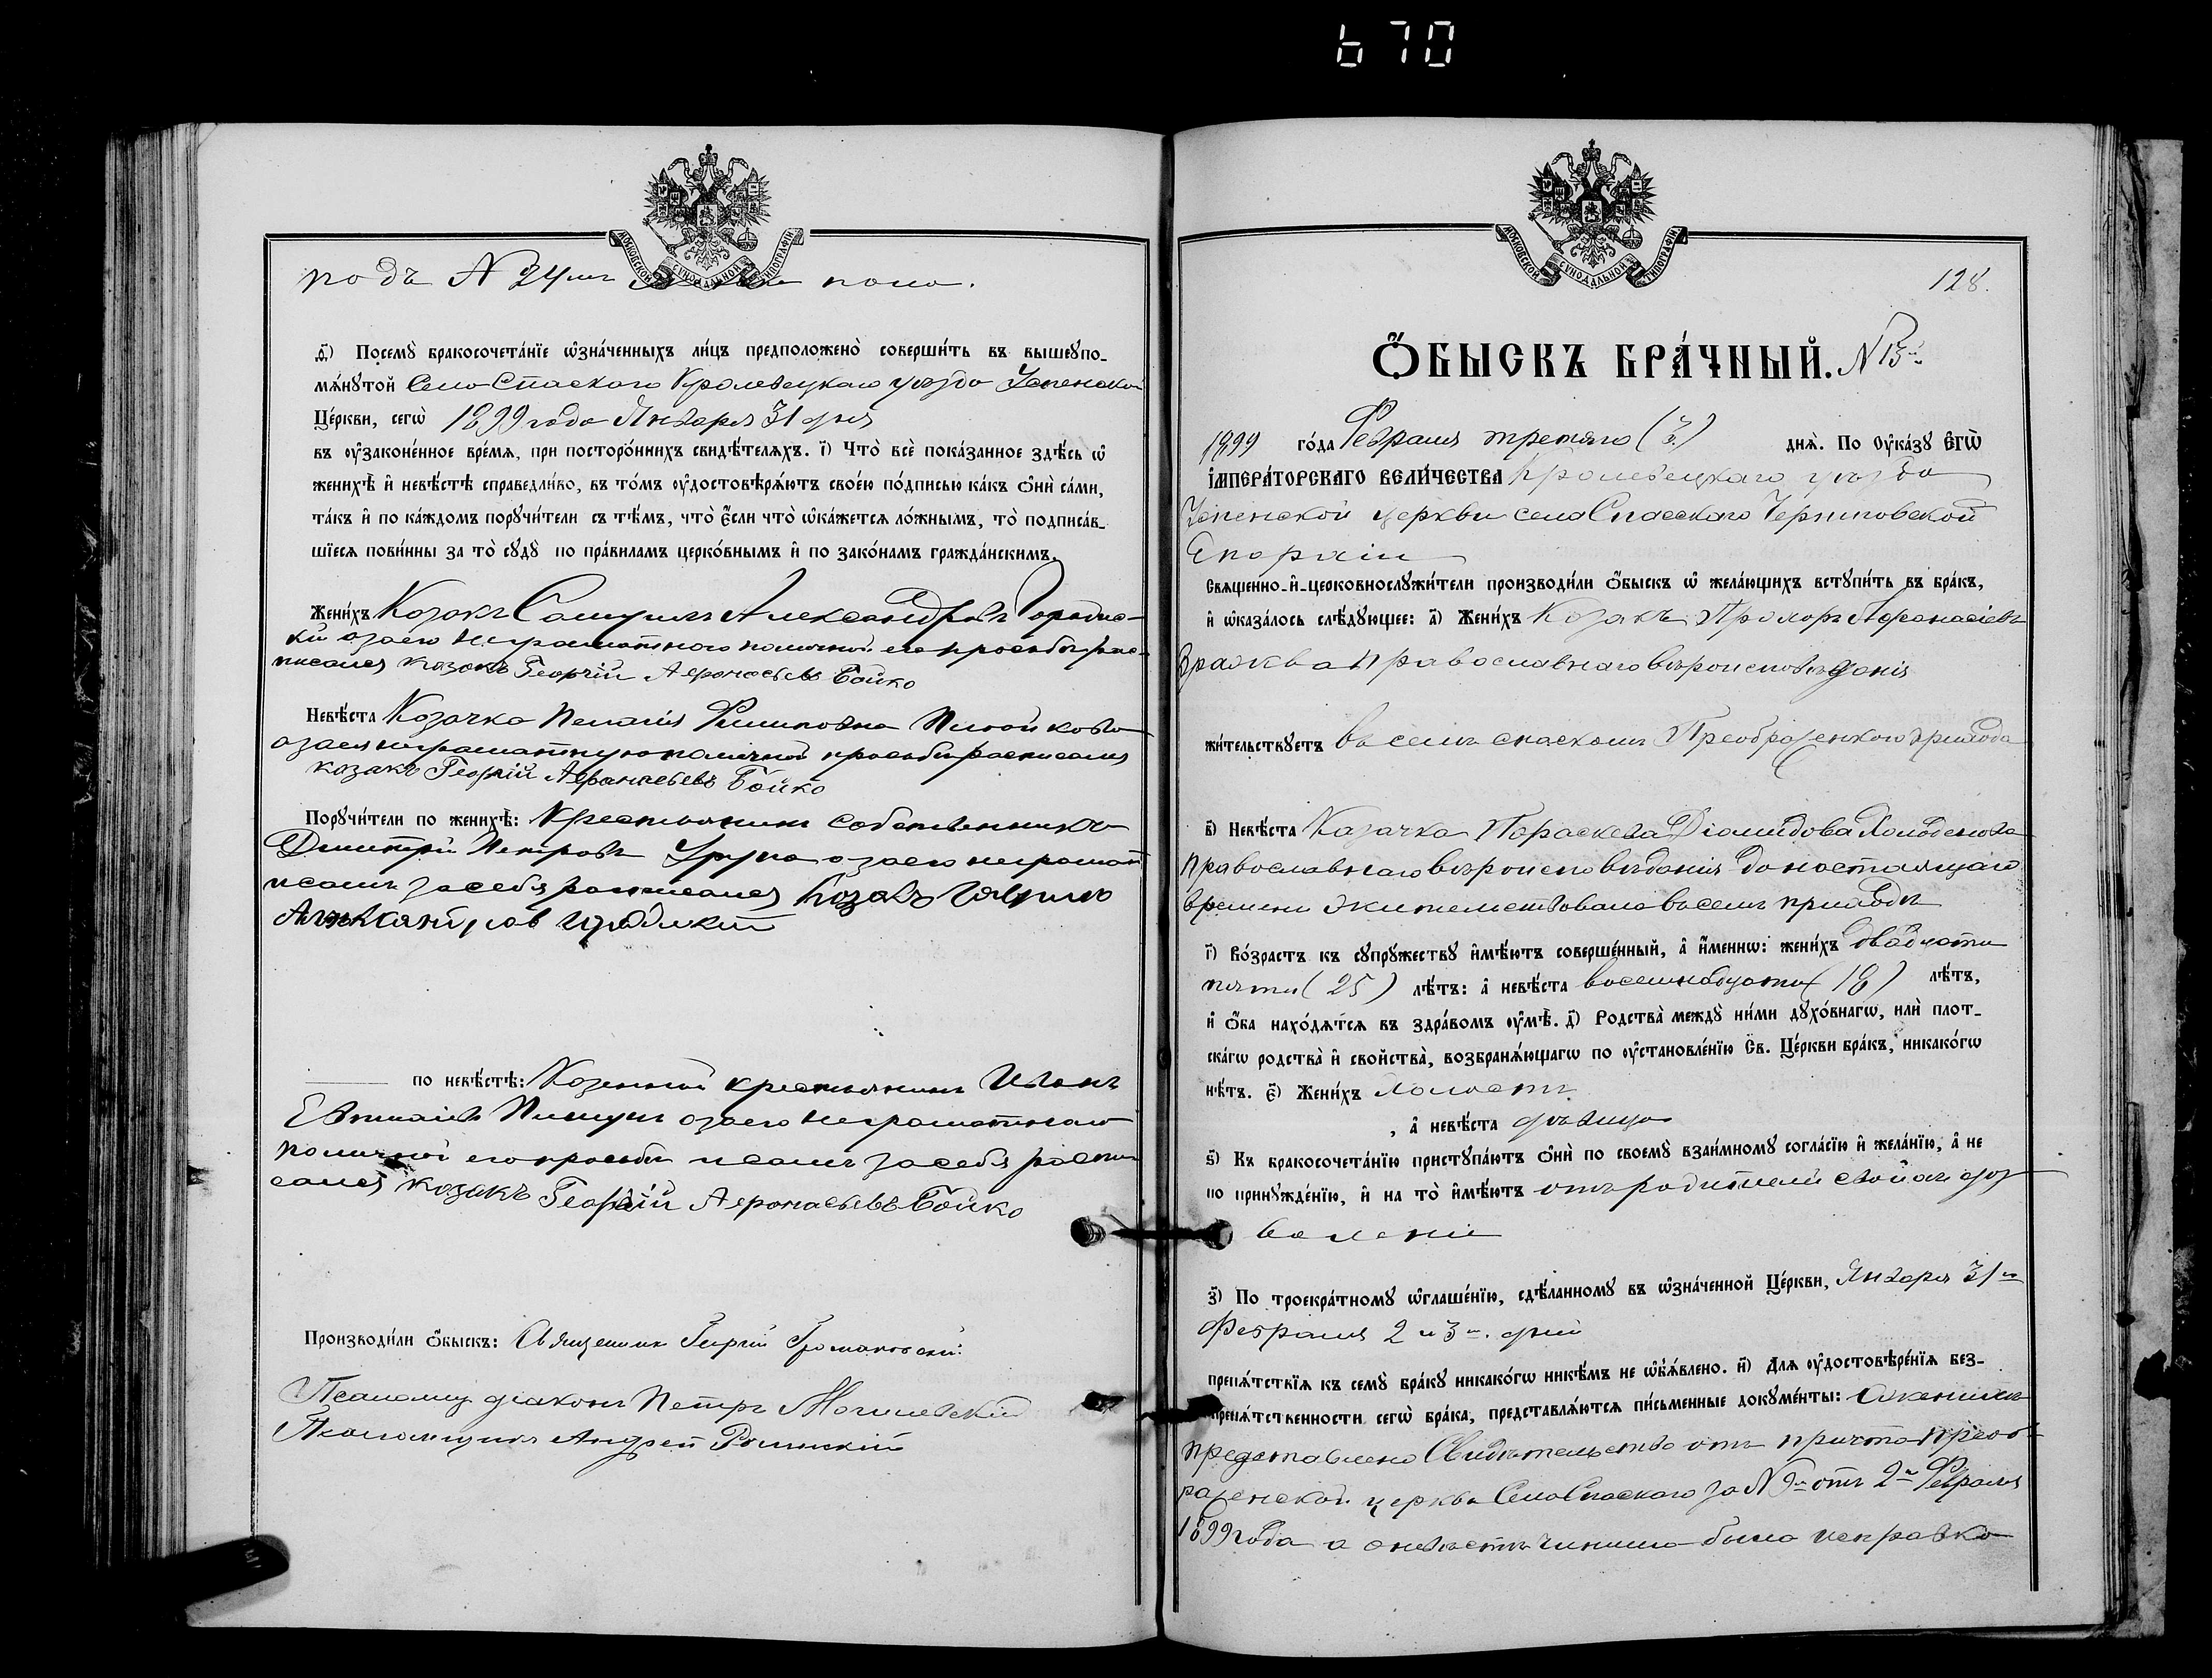 670
МОСКОВСКОЙ СѴНОДАЛЬНОЙ ТИПОГРАФІИ
подъ № 24мъ
ѳ҃) Посемꙋ̀ бракосочета́нїе ѡ҆зна́ченныхъ ли́цъ предположено̀ соверши́ть въ вышеꙋпо-
мѧ́нꙋтой Село Спаского Кролевецкаго уѣзда Успенской
Це́ркви, сегѡ̀ 1899 года Января 31 дня
въ ᲂу҆законе́нное вре́мѧ, при посторо́ннихъ свидѣ́телѧхъ. і҃) Что̀ всѐ пока́занное здѣ́сь ѡ҆
женихѣ̀ и҆ невѣ́стѣ справедли́во, въ то́мъ ᲂу҆достовѣрѧ́ютъ свое́ю по́дписью ка́къ ѻ҆нѝ са́ми,
та́къ и҆ по ка́ждомъ порꙋчи́тели съ тѣ́мъ, что̀ є҆́сли что̀ ѡ҆ка́жетсѧ ло́жнымъ, то̀ подписа́в-
шїесѧ пови́нны за то̀ сꙋдꙋ̀ по пра́виламъ церко́внымъ и҆ по зако́намъ гражда́нскимъ.
Жени́хъ Козакъ Самуилъ Александровъ Городис-
кій а заего неграмотнаго поличной его просьбы рас-
писался козакъ Георгій Афонасьевъ Бойко
Невѣ́ста Козачка Пелагія Филиповна
а заея неграматную поличной просьбы росписался
козакъ Георгій Афанасьевъ Бойко
Порꙋчи́тели по женихѣ̀: Крестьянинъ собственникъ
Дмитрій Петровъ а заего неграмат
исамъ засебя росписался Козакъ Гаврило
по невѣ́стѣ: Казенной крестьянинъ Иванъ
Евтихіевъ Пищукъ азаего неграматнаго
поличной его просьбы исамъ засебя роспи
сался козакъ Георгій Афонасьевъ Бойко
Производи́ли ѻ҆́быскъ: Священникъ Георгій
Псаломщ діаконъ Петръ Могилевскій
Псаломщикъ Андрей Рклинскій
МОСКОВСКОЙ СѴНОДАЛЬНОЙ ТИПОГРАФІИ
128.
Ѻ҆́БЫСКЪ БРА́ЧНЫЙ. № 13й
1899 го́да Февраля третяго (3.) днѧ̀. По Оу҆ка́зꙋ Є҆ГѠ̀
І҆МПЕРА́ТОРСКАГО ВЕЛИ́ЧЕСТВА Кролевецкаго уѣзда
Успенской церкви села Спасскаго Черниговской
Епархіи
Свѧщенно-и҆-церковнослꙋжи́тели производи́ли ѻ҆́быскъ ѡ҆ жела́ющихъ встꙋпи́ть въ бра́къ,
и҆ ѡ҆каза́лось слѣ́дꙋющее: а҃) Жени́хъ Козакъ Прохоръ Афонасіевъ
Вражко Православнаго вѣроисповѣданія
жи́тельствꙋетъ въ селѣ спаскомъ Преображенскаго прихода
в҃) Невѣ́ста Казачка Параскева Діомидова Холоденова
Православнаго вѣроисповѣданія до настоящаго
времени жительствовала всемъ приходѣ
г҃) Во́зрастъ къ сꙋпрꙋ́жествꙋ и҆мѣ́ютъ соверше́нный, а҆ и҆́меннѡ: жени́хъ двадцати
пяти (25) лѣ́тъ: а҆ невѣ́ста восемнадцати (18) лѣ́тъ,
и҆ ѻ҆́ба нахо́дѧтсѧ въ здра́вомъ ᲂу҆мѣ̀. д҃) Родства̀ междꙋ̀ ни́ми дꙋхо́внагѡ, илѝ плот-
ска́гѡ родства̀ и҆ сво́йства̀, возбранѧ́ющагѡ по ᲂу҆становле́нїю Св. Це́ркви бра́къ, никако́гѡ
нѣ́тъ. є҃) Жени́хъ Холостъ
, а҆ невѣ́ста дѣвица
ѕ҃) Къ бракосочета́нїю пристꙋпа́ютъ ѻ҆нѝ по своемꙋ̀ взаи́мномꙋ согла́сїю и҆ жела́нїю, а҆ не
по принꙋжде́нїю, и҆ на то̀ и҆мѣ́ютъ отъ родителей своихъ доз
воленіе
з҃) По троекра́тномꙋ ѡ҆глаше́нїю, сдѣ́ланномꙋ въ ѡ҆зна́ченной Це́ркви, Января 31го
Февраля 2 и 3го. дней
препѧ́тствїѧ къ семꙋ̀ бра́кꙋ никако́гѡ никѣ́мъ не ѡ҆б̾ѧ́влено. и҃) Длѧ ᲂу҆достовѣре́нїѧ без-
препѧ́тственности сегѡ̀ бра́ка, представлѧ́ютсѧ пи́сьменные докꙋме́нты: Оженихѣ
представлено Свидѣтельство отъ причта преоб-
раженской церкви Села Спаскаго за № отъ 2го Февраля
1899 года а оневѣстѣ чинима была исправка